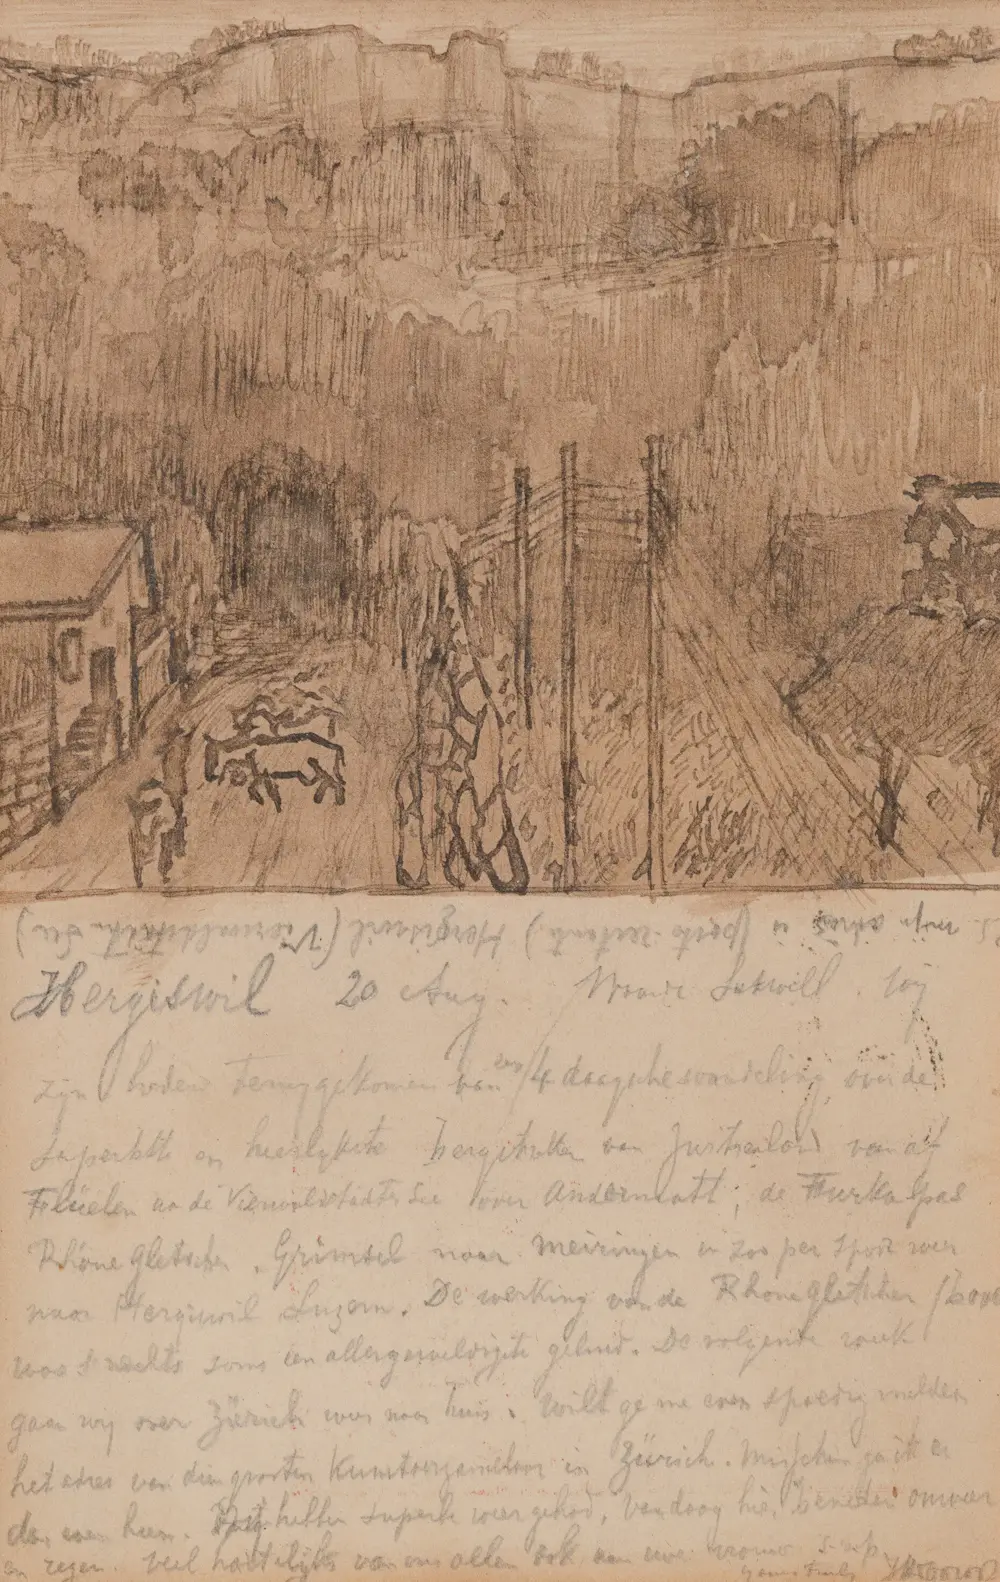 mijn adres is (poste-restante) Hergiswil (Vierwaldstätter See)
Hergiswil 20 Aug. Waarde Wij
zijn heden teruggekomen van 4 daagsche wandeling over de
superbste en heerlykste bergstreken van Zwitserland vanaf
Flüelen a/d Vierwaldstädter See over Andermatt, de Furkapas
Rhône Gletscher, Grimsel naar Meiringen en zoo per spoor weer
naar Hergiswil Luzern. De werking van de Rhonegletscher
was 's nachts soms een allergeweldigste geluid. De volgende week
gaan wij over Zürich weer naar huis. Wilt ge me even spoedig melden
het adres van dien grooten Kunstverzamelaar in Zürich. Misschien ga ik er
dan even heen. hebben superb weer gehad, vandaag hier beneden onweer
en regen. Veel hartelijks van ons allen ook aan uwe vrouw